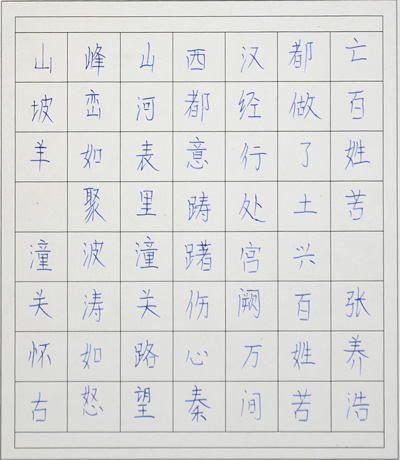 山坡羊 潼关怀古
峰峦如聚波涛如怒
山河表里潼关路望
西都意踌躇伤心秦
汉经行处宫阙万间
都做了土兴百姓苦
亡百姓苦 张养浩